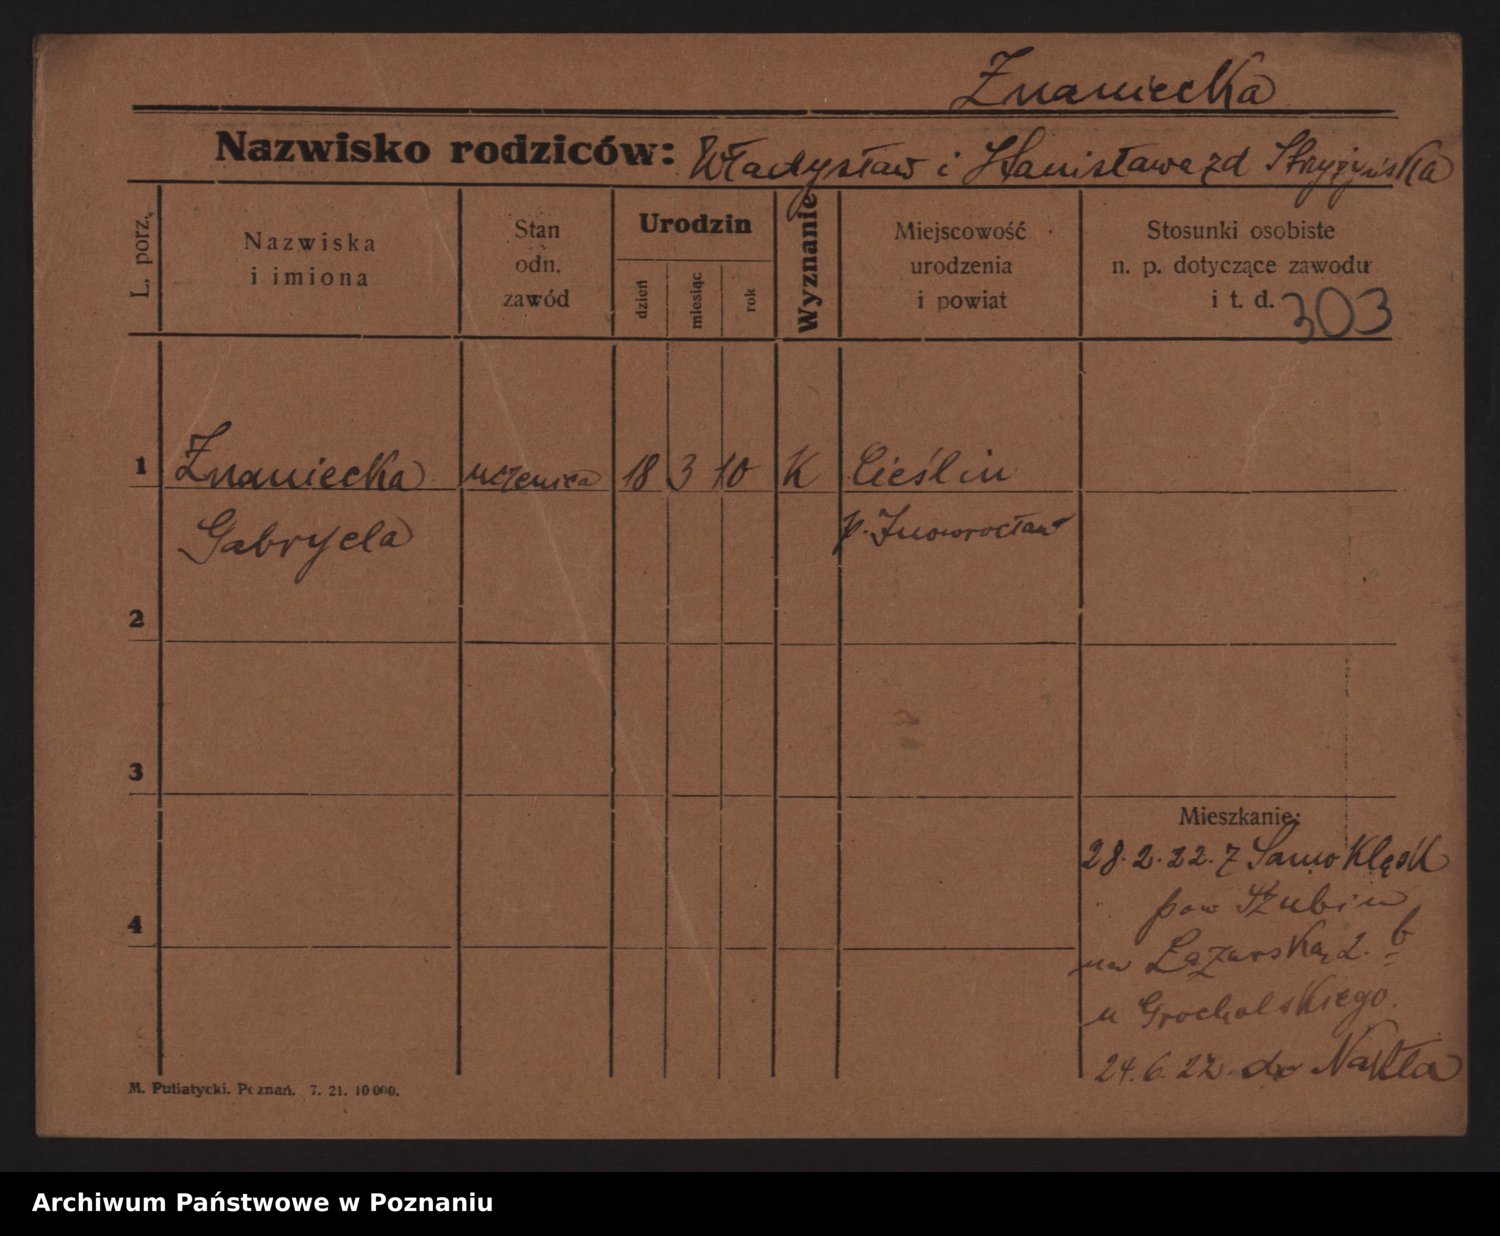 Znaniecka
Nazwisko rodziców: Władysław i Stanisława zd Stryjyńska
L. porz.
Nazwiska
i imiona
Stan
odn.
zawód
Urodzin
dzień
miesiąc
rok
Wyznanie
Miejscowość
urodzenia
i powiat
Stosunki osobiste
n. p. dotyczące zawodu
i t. d. 303
1 Znaniecka uczenica 18 3 10 K Cieślin
Gabryela p. Inowrocław
2
3
Mieszkanie:
28.2.22. z Samoklęsk
pow Szubin
4
na Łazarska 2. b
u Grocholskiego.
24.6.22 do Nakła
M. Putiatycki. Poznań. 7. 21. 10 000.
Archiwum Państwowe w Poznaniu